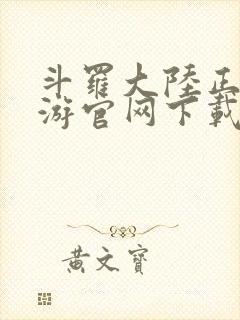 斗羅大陸正
游官网下載
黃文寶